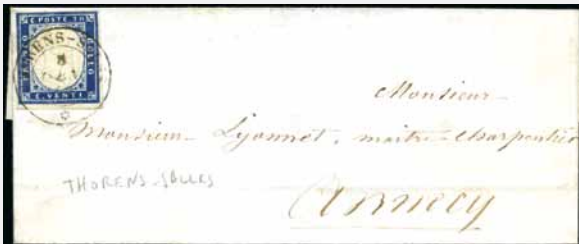 C. POSTE 20
FRANCO
BOLLO
C. VENTI
8
Monsieur
Monsieur Lyonnet, maitre charpentier
THORENS-SALLES
Annecy